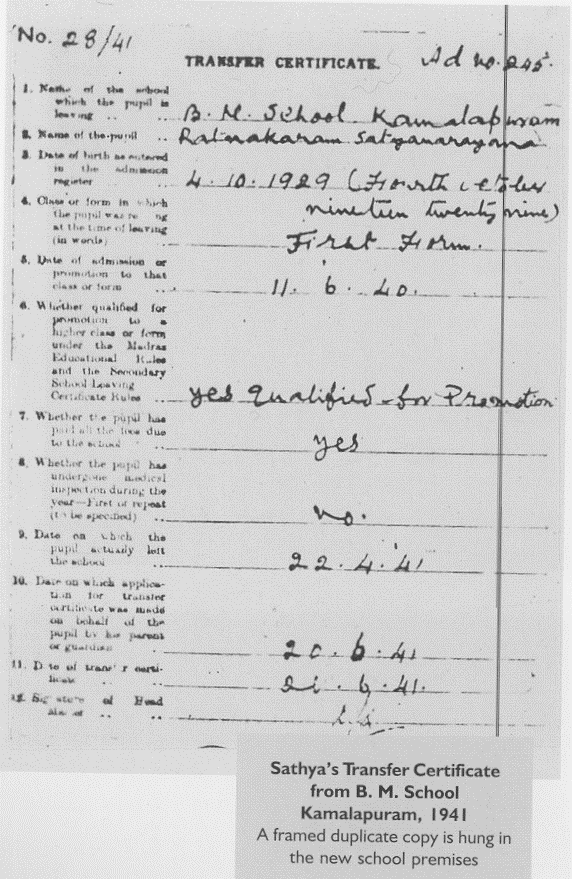 No. 28/41
TRANSFER CERTIFICATE.
Ad no. 245.
1. Name of the school
which the pupil is
leaving .. .. B. M. School Kamalapuram
2. Name of the pupil Ratnakaram Satyanarayana
3. Date of birth as entered
in the admission
register .. 4.10.1929 (Fourth october
nineteen twenty nine)
4. Class or form in which
the pupil was
at the time of leaving
(in words) .. First Form.
5. Date of admission or
promotion to that
class or form .. 11. 6. 40.
6. Whether qualified for
promotion to a
higher class or form
under the Madras
Educational Rules
and the Secondary
School Leaving
Certificate Rules yes qualified for Promotion
7. Whether the pupil has
paid all the fees due
to the school .. yes
8. Whether the pupil has
undergone medical
inspection during the
year—First or repeat
(to be specified) .. no.
9. Date on which the
pupil actually left
the school .. 22.4.41
10. Date on which applica-
tion for transfer
certificate was made
on behalf of the
pupil by his parent
or guardian .. 20.6.41
11. Date of transfer certi-
ficate .. .. 6.41.
12. Signature of Head
.. ..
Sathya's Transfer Certificate
from B. M. School
Kamalapuram, 1941
A framed duplicate copy is hung in
the new school premises